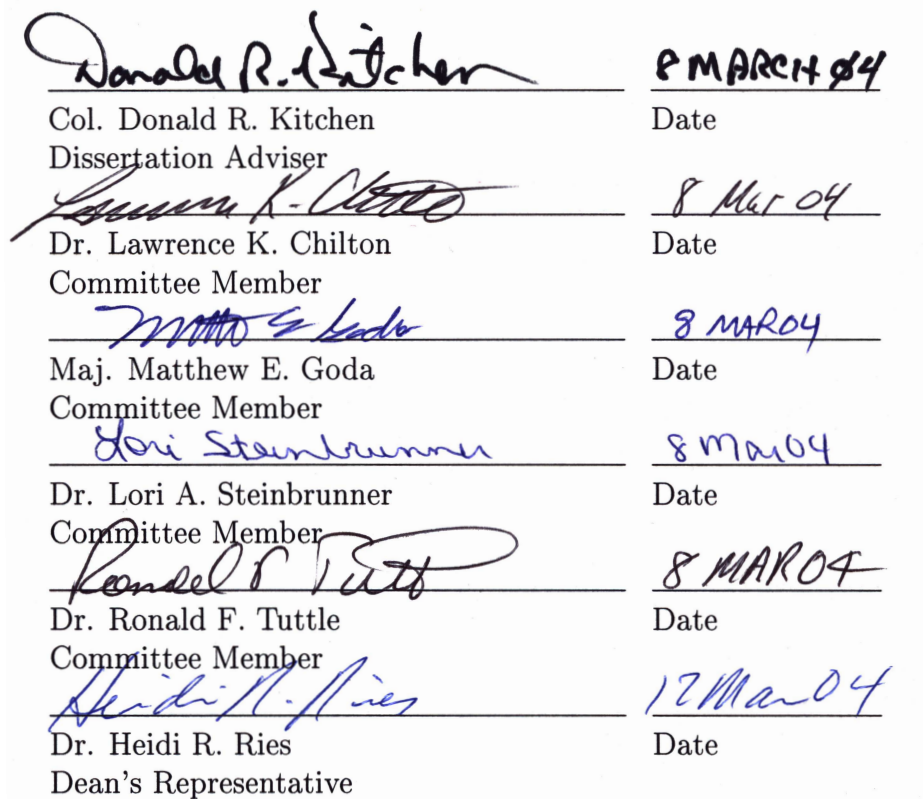 Donald R. Kitchen 8 MARCH 04
Col. Donald R. Kitchen Date
Dissertation Adviser
Lawrence K. Chilton 8 Mar 04
Dr. Lawrence K. Chilton Date
Committee Member
Matthew E Goda 8 MAR04
Maj. Matthew E. Goda Date
Committee Member
Lori Steinbrunner 8 Mar04
Dr. Lori A. Steinbrunner Date
Committee Member
Ronald F Tuttle 8 MAR04
Dr. Ronald F. Tuttle Date
Committee Member
Heidi R. Ries 12 Mar 04
Dr. Heidi R. Ries Date
Dean's Representative